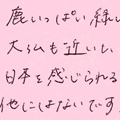 鹿いっぱい緑い
大仏も近いし
日本を感じられる
他にはないです